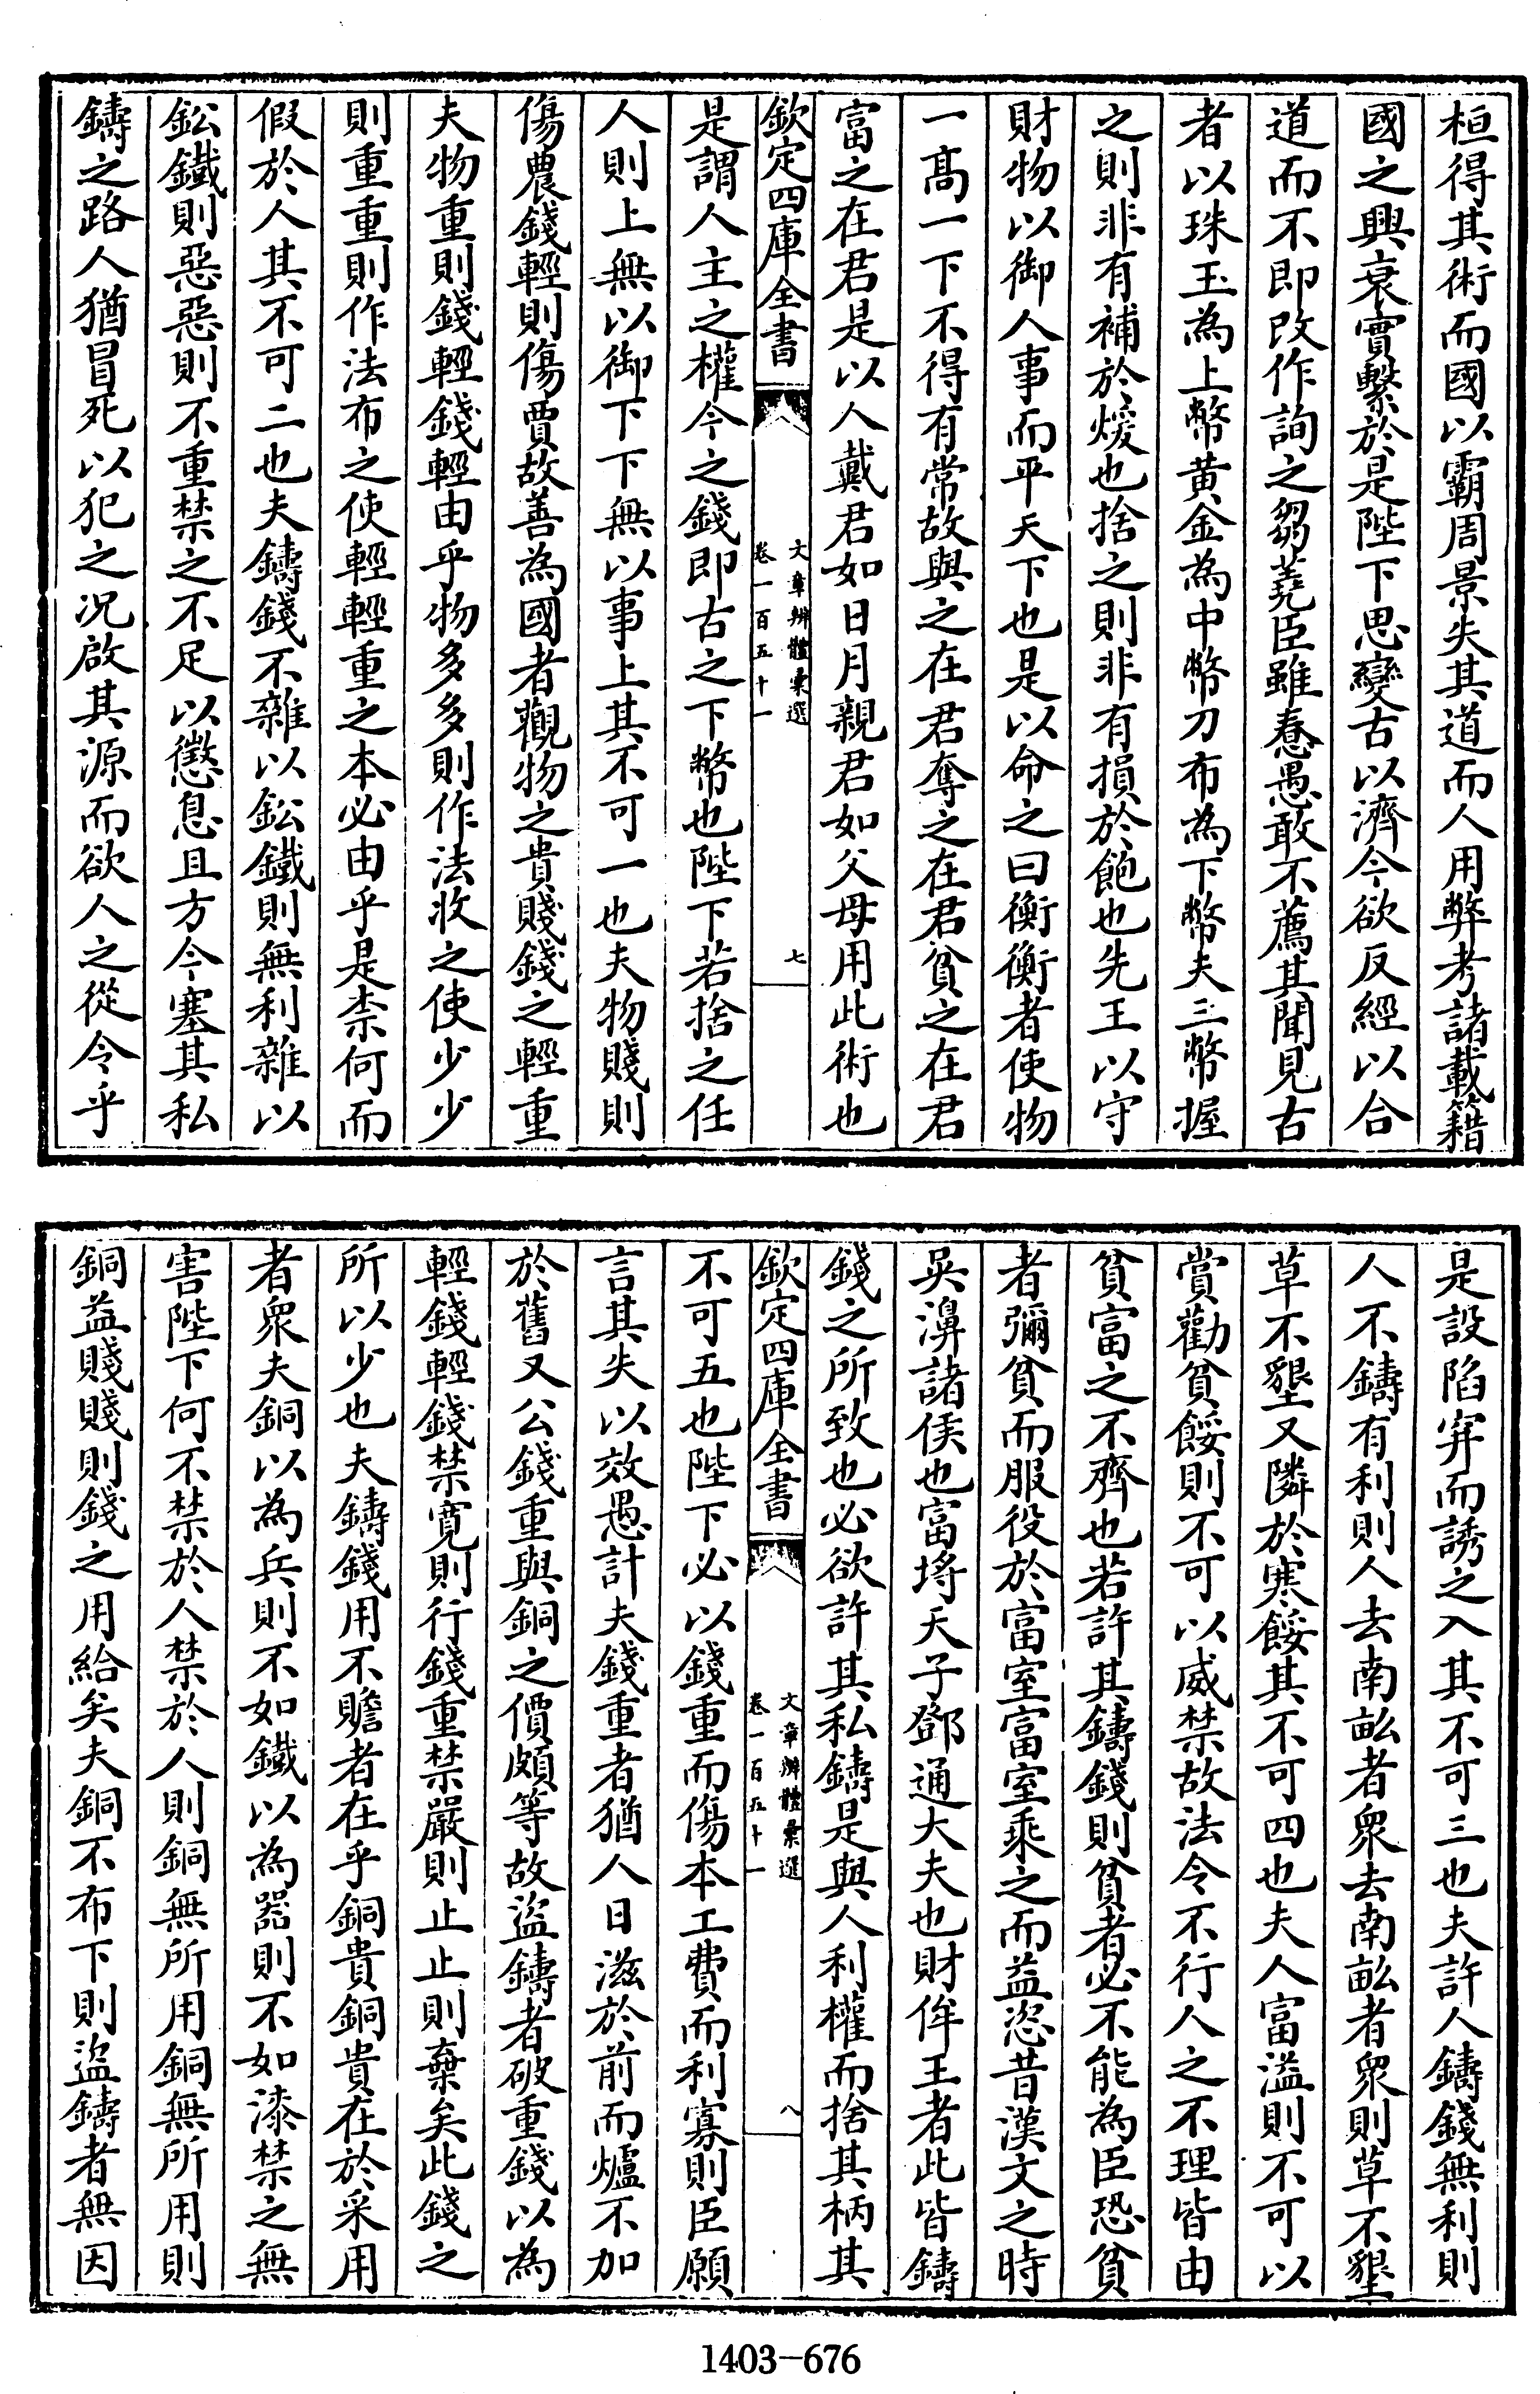 桓得其術而國以霸周景失其道而人用弊考諸載籍
國之興衰實繫於是陛下思變古以濟今欲反經以合
道而不即改作詢之芻蕘臣雖惷愚敢不薦其聞見古
者以珠玉為上幣黄金為中幣刀布為下幣夫三幣握
之則非有補於煖也捨之則非有損於飽也先王以守
財物以御人事而平天下也是以命之曰衡衡者使物
一高一下不得有常故與之在君奪之在君貧之在君
富之在君是以人戴君如日月親君如父母用此術也
欽定四庫全書
文章辨體彙選
卷一百五十一
七
是謂人主之權今之錢即古之下幣也陛下若捨之任
人則上無以御下下無以事上其不可一也夫物賤則
傷農錢輕則傷賈故善為國者觀物之貴賤錢之輕重
夫物重則錢輕錢輕由乎物多多則作法收之使少少
則重重則作法布之使輕輕重之本必由乎是柰何而
假於人其不可二也夫鑄錢不雜以鈆鐵則無利雜以
鈆鐵則惡惡則不重禁之不足以懲息且方今塞其私
鑄之路人猶冒死以犯之况啟其源而欲人之從令乎
是設陷穽而誘之入其不可三也夫許人鑄錢無利則
人不鑄有利則人去南畝者衆去南畝者衆則草不墾
草不墾又隣於寒餒其不可四也夫人富溢則不可以
賞勸貧餒則不可以威禁故法令不行人之不理皆由
貧富之不齊也若許其鑄錢則貧者必不能為臣恐貧
者彌貧而服役於富室富室乘之而益恣昔漢文之時
吳濞諸侯也富埒天子鄧通大夫也財侔王者此皆鑄
錢之所致也必欲許其私鑄是與人利權而捨其柄其
欽定四庫全書
文章辨體彙選
卷一百五十一
八
不可五也陛下必以錢重而傷本工費而利寡則臣願
言其失以效愚計夫錢重者猶人日滋於前而爐不加
於舊又公錢重與銅之價頗等故盜鑄者破重錢以為
輕錢輕錢禁寛則行錢重禁嚴則止止則棄矣此錢之
所以少也夫鑄錢用不贍者在乎銅貴銅貴在於采用
者衆夫銅以為兵則不如鐵以為器則不如漆禁之無
害陛下何不禁於人禁於人則銅無所用銅無所用則
銅益賤賤則錢之用給矣夫銅不布下則盜鑄者無因
1403—676